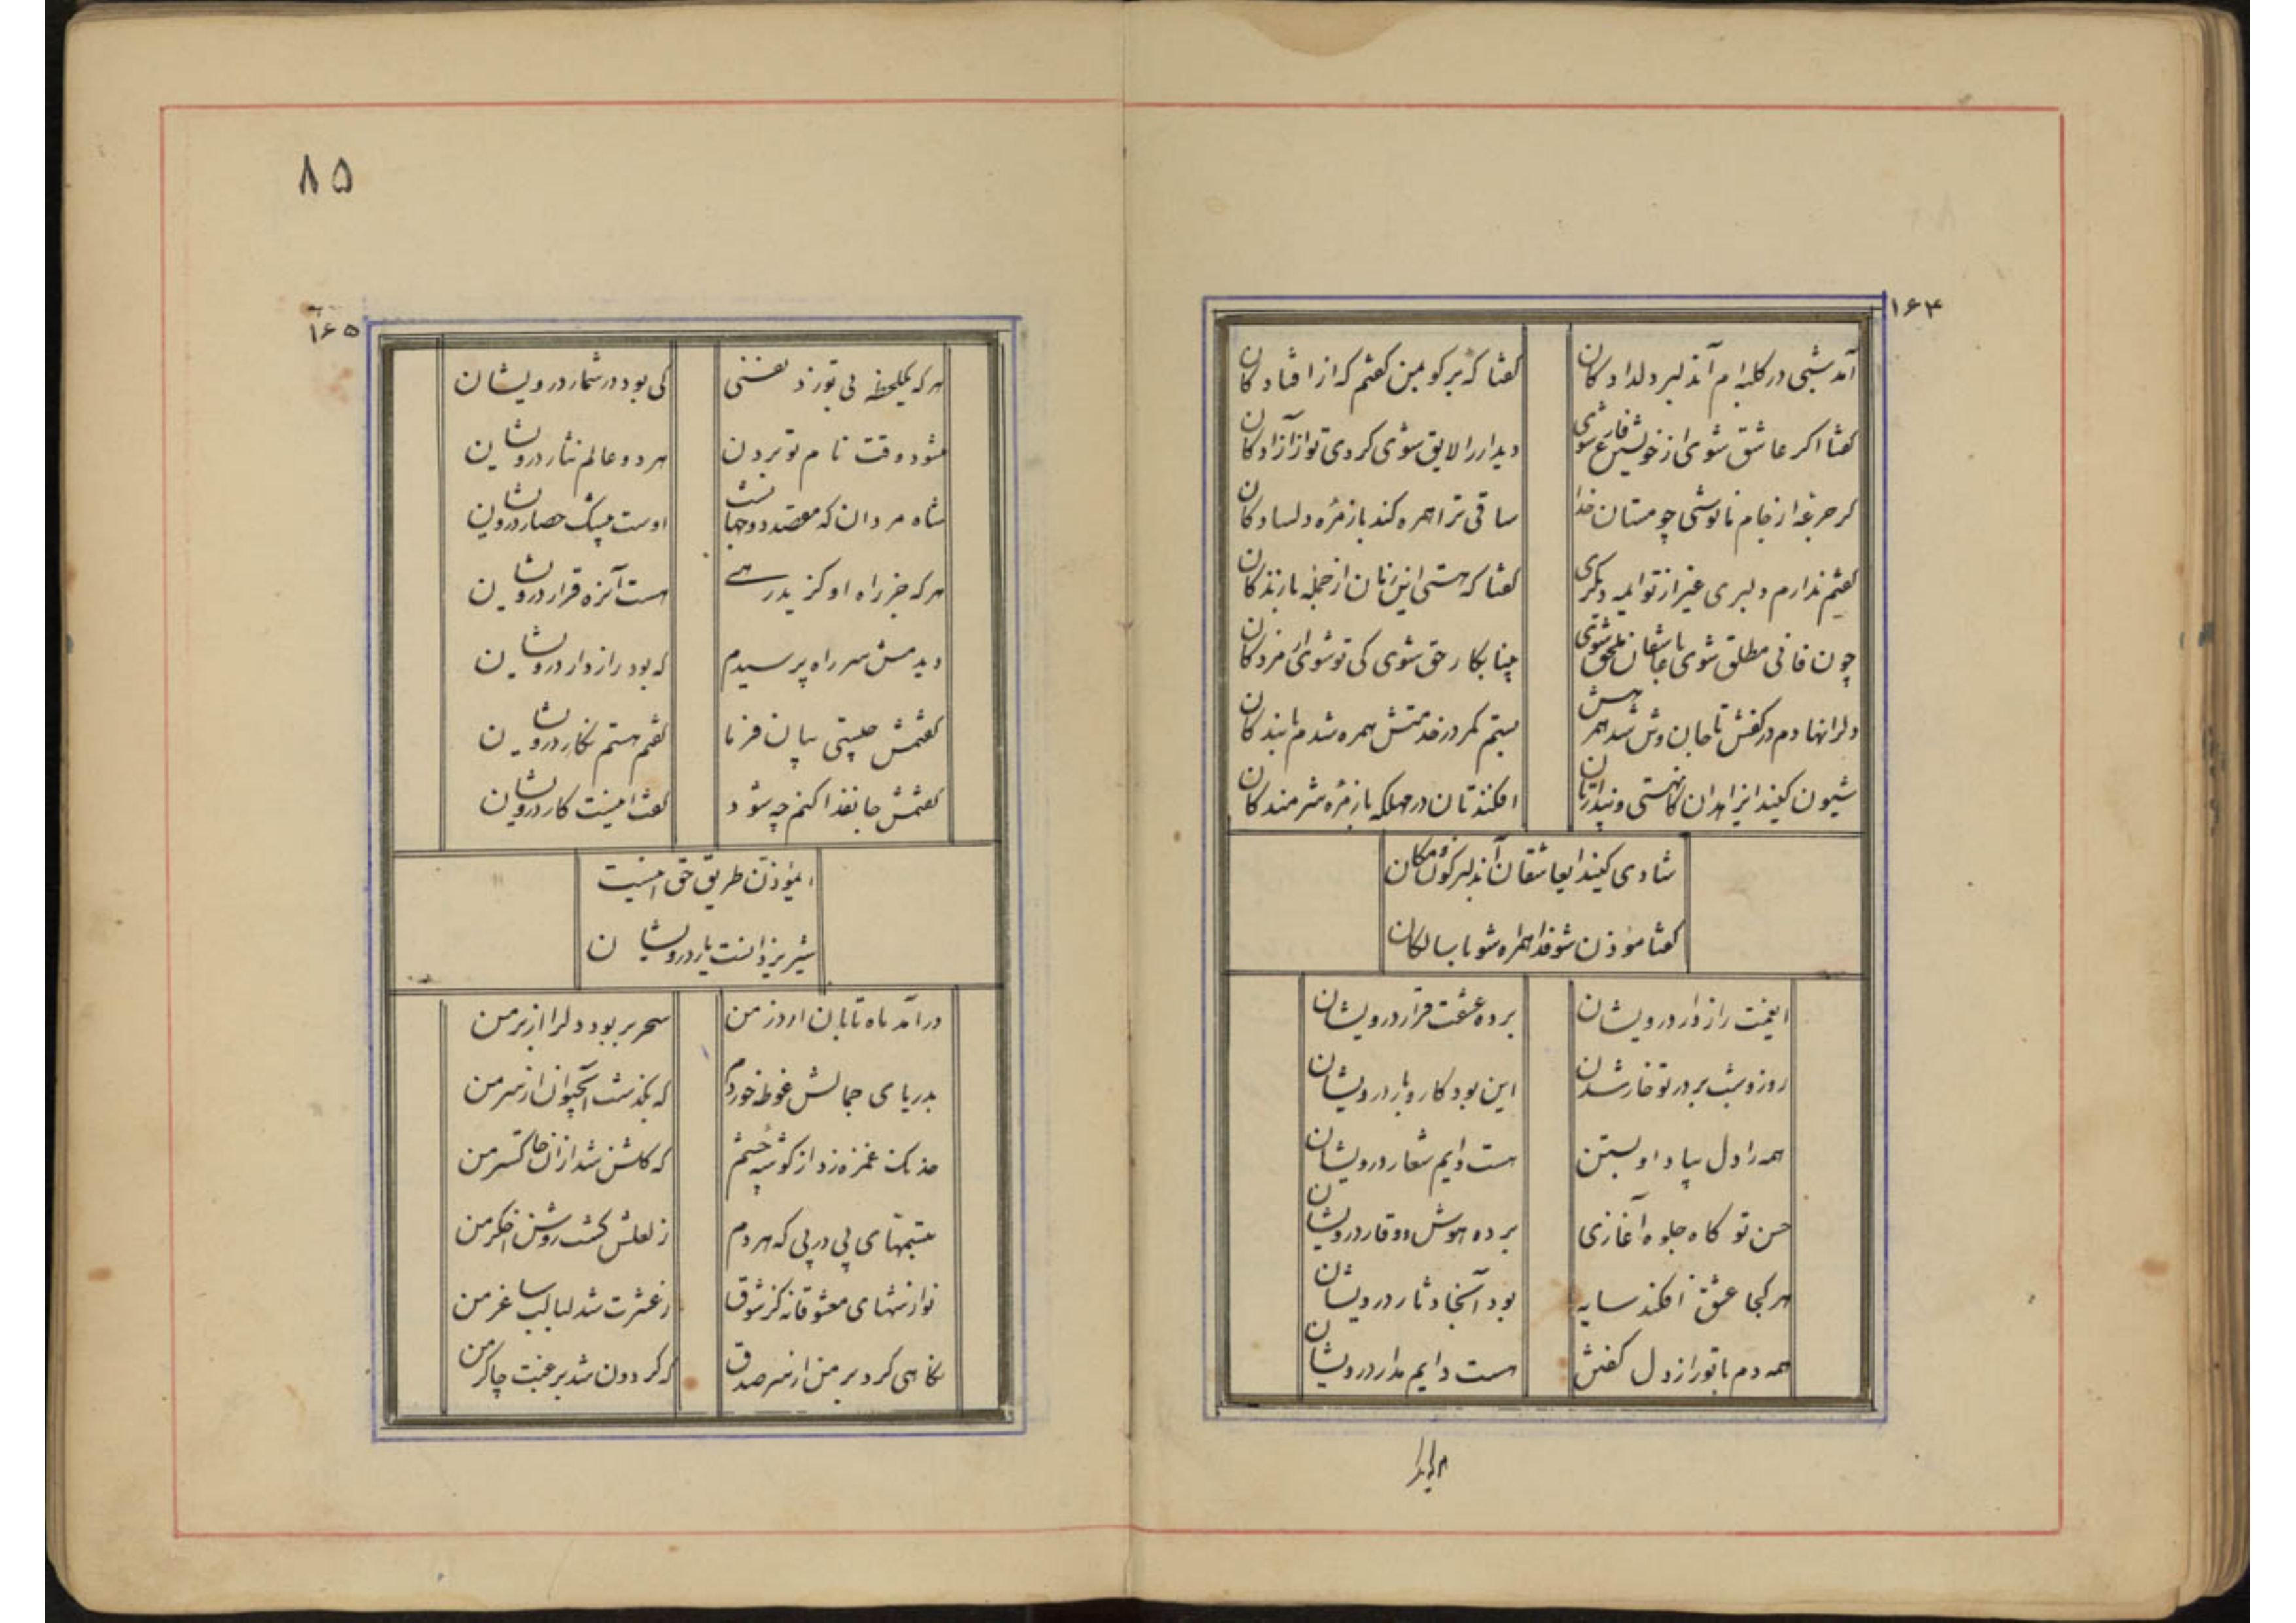 ۱۶۴
آمد شبی در کلبه‌ام آندلبر دلدادکان
کفتا که برکو مین کفتم که از افتادکان
کفتا اکر عاشق شوی از خویش فارغ شوی
دیدار را لایق شوی کردی تو از آزادکان
کر جرعه از جام ما نوشی چو مستان خدا
ساقی ترا همره کند بازمره دلسادکان
کفتم ندارم دلبری غیر از تو ایمه دیکری
کفتا که هستی این زمان از جمله بازندکان
چون فانی مطلق شوی با عاشقان ملحق شوی
بینا بکار حق شوی کی تو شوی از مردکان
دلرا نهادم در کفش تا جان وش شد همرهش
بستم کمر در خدمتش همره شدم با بندکان
شیون کنید ایزاهدان کاهستی و پندارتان
افکندتان در مهلکه بازمره شرمندکان
شادی کنید ایعاشقان آندلبر کون و مکان
کفتا موذن شو فدا همراه شو با سالکان
ایغمت رازدار درویشان
برده عشقت قرار درویشان
روز و شب بر در تو خار شدن
این بود کار و بار درویشان
همه را دل بیاد او بستن
هست دایم شعار درویشان
حسن تو کاه جلوه آغازی
برده هوش و وقار درویشان
هر کجا عشق افکند سایه
بود آنجا دثار درویشان
همه دم با تو راز دل کفتن
هست دایم مدار درویشان
۸۵
۱۶۵
هر که یکلحظه بی تو زد نفسی
کی بود در شمار درویشان
میشود وقت نام تو بردن
هر دو عالم نثار درویشان
شاه مردان که مقصد دو جهانست
اوست بیشک حصار درویشان
هر که جز راه او کزید رهی
هست آنره قرار درویشان
دیدمش سر راه پرسیدم
که بود رازدار درویشان
کفتمش چیستی بیان فرما
کفتم هستم نکار درویشان
کفتمش جان فدا کنم چه شود
کفت اینست کار درویشان
ایموذن طریق حق اینست
شیر یزدانست یار درویشان
درآمد ماه تابان از در من
سحر بربود دلرا از بر من
بدریای جمالش غوطه خوردم
که بکذشت آبحیوان از سر من
خدنک غمزه زد از کوشه چشم
که کلشن شد از آن خاکستر من
تبسمهای پی در پی که هر دم
ز لعلش کشت روشن اخکر من
نوازشهای معشوقانه کز شوق
ز عشرت شد لبالب ساغر من
نکاهی کرد بر من از سر صدق
که کردون شد برغبت چاکر من